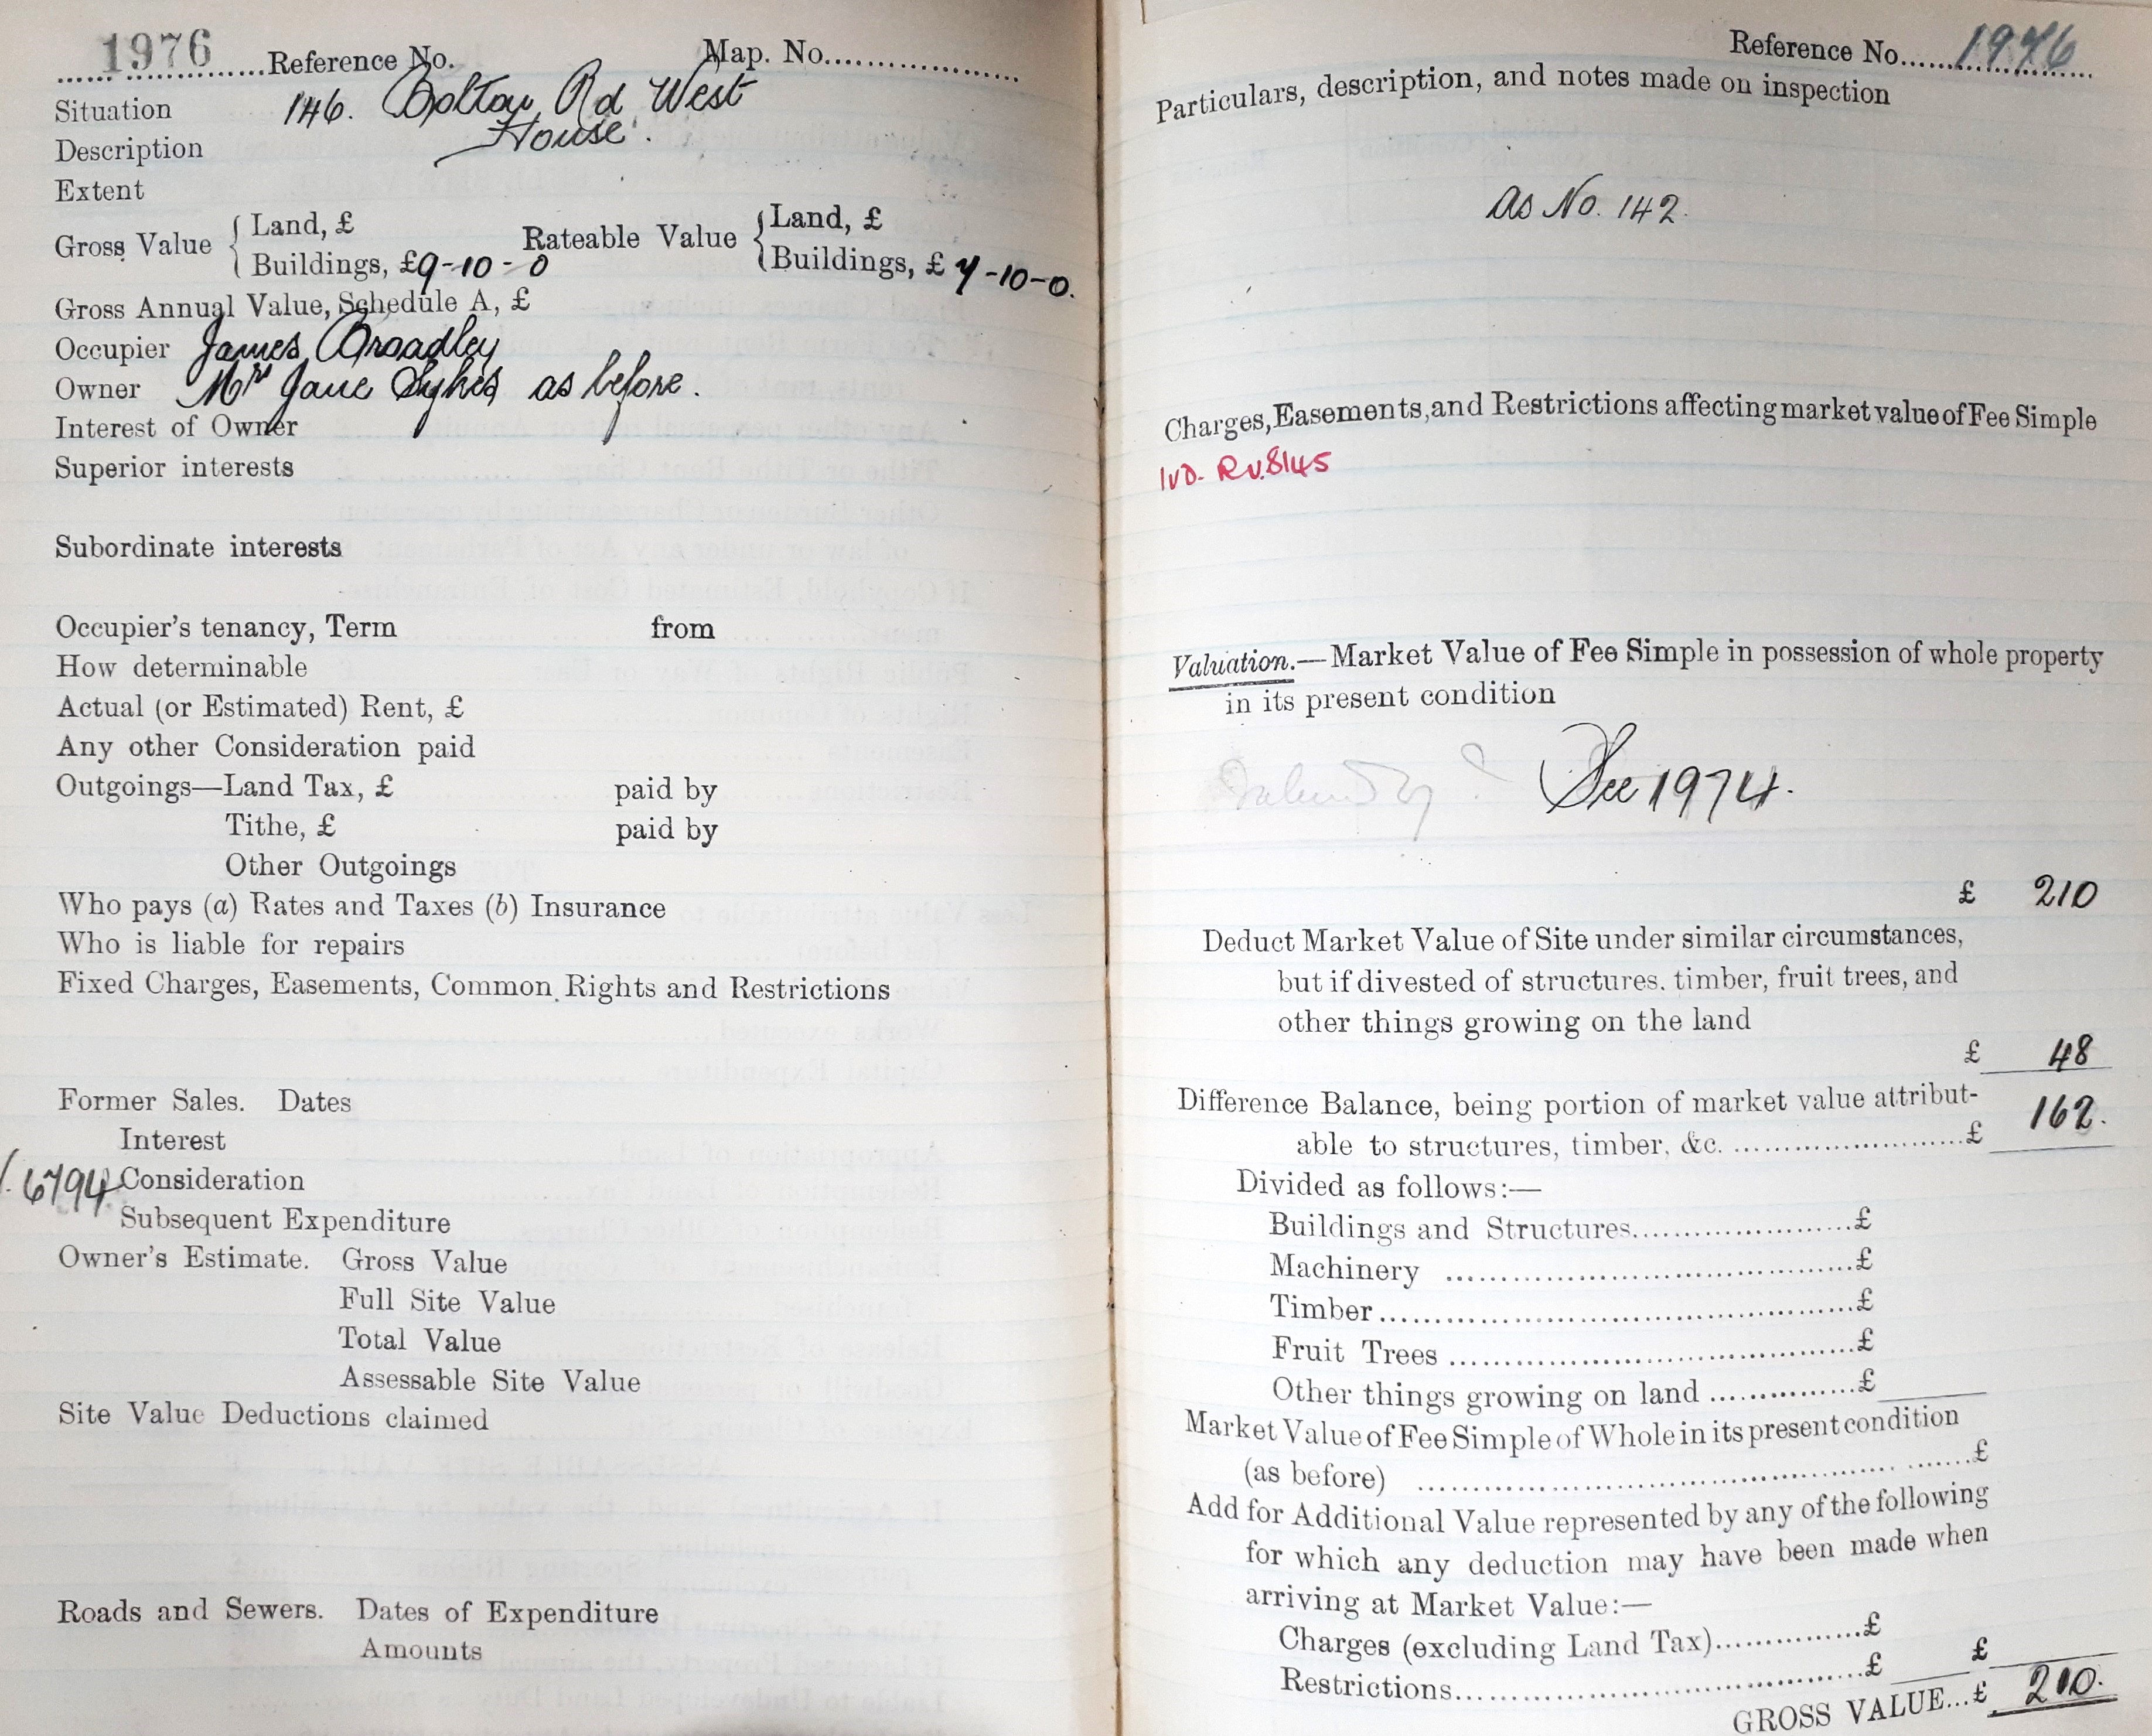 1976 Reference No. Map. No.
Situation 146. Bolton Rd West
Description House.
Extent
Gross Value { Land, £ Rateable Value { Land, £
Buildings, £9-10-0 Buildings, £ 7-10-0.
Gross Annual Value, Schedule A, £
Occupier James Broadley
Owner Mrs Jane Sykes as before.
Interest of Owner
Superior interests
Subordinate interests
Occupier's tenancy, Term from
How determinable
Actual (or Estimated) Rent, £
Any other Consideration paid
Outgoings—Land Tax, £ paid by
Tithe, £ paid by
Other Outgoings
Who pays (a) Rates and Taxes (b) Insurance
Who is liable for repairs
Fixed Charges, Easements, Common Rights and Restrictions
Former Sales. Dates
Interest
6794 Consideration
Subsequent Expenditure
Owner's Estimate. Gross Value
Full Site Value
Total Value
Assessable Site Value
Site Value Deductions claimed
Roads and Sewers. Dates of Expenditure
Amounts
Reference No. 1976
Particulars, description, and notes made on inspection
as No. 142.
Charges, Easements, and Restrictions affecting market value of Fee Simple
IVD. RV.8145
Valuation.—Market Value of Fee Simple in possession of whole property
in its present condition
See 1974.
£ 210
Deduct Market Value of Site under similar circumstances,
but if divested of structures. timber, fruit trees, and
other things growing on the land
£ 48
Difference Balance, being portion of market value attribut-
able to structures, timber, &c. £ 162.
Divided as follows:—
Buildings and Structures £
Machinery £
Timber £
Fruit Trees £
Other things growing on land £
Market Value of Fee Simple of Whole in its present condition
(as before) £
Add for Additional Value represented by any of the following
for which any deduction may have been made when
arriving at Market Value:—
Charges (excluding Land Tax) £
Restrictions £ £
GROSS VALUE...£ 210.